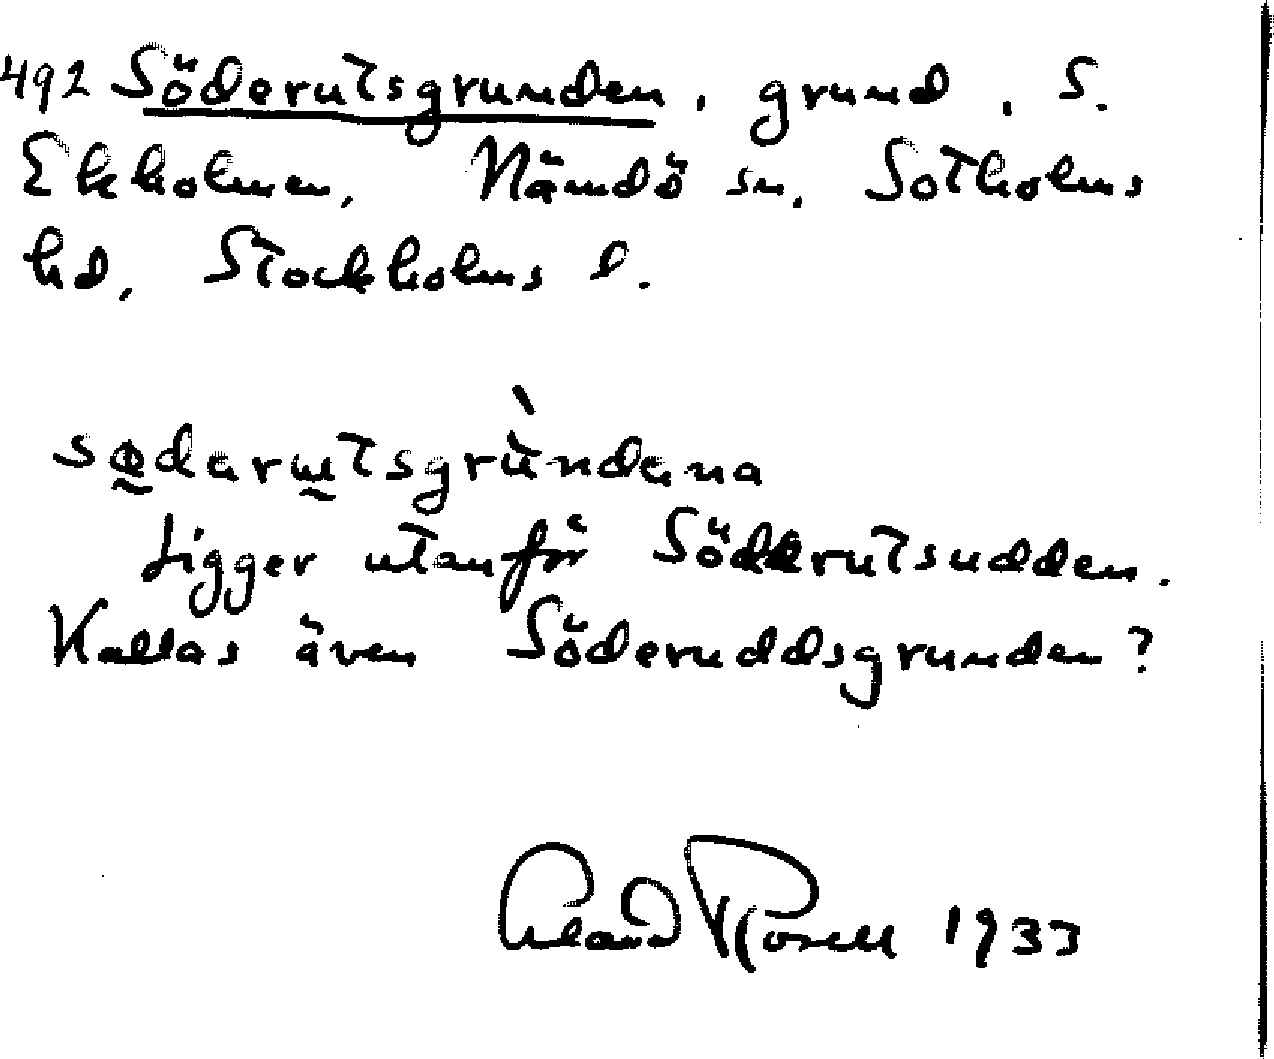 492 Söderutsgrunden, grund, S.
Ekholmen, Nämdö sn, Sotholms
hd, Stockholms l.
sø̰darɯ̰tsgrùndana
Ligger utanför Söderutsudden.
Kallas även Söderuddsgrunden?
Rosell 1933